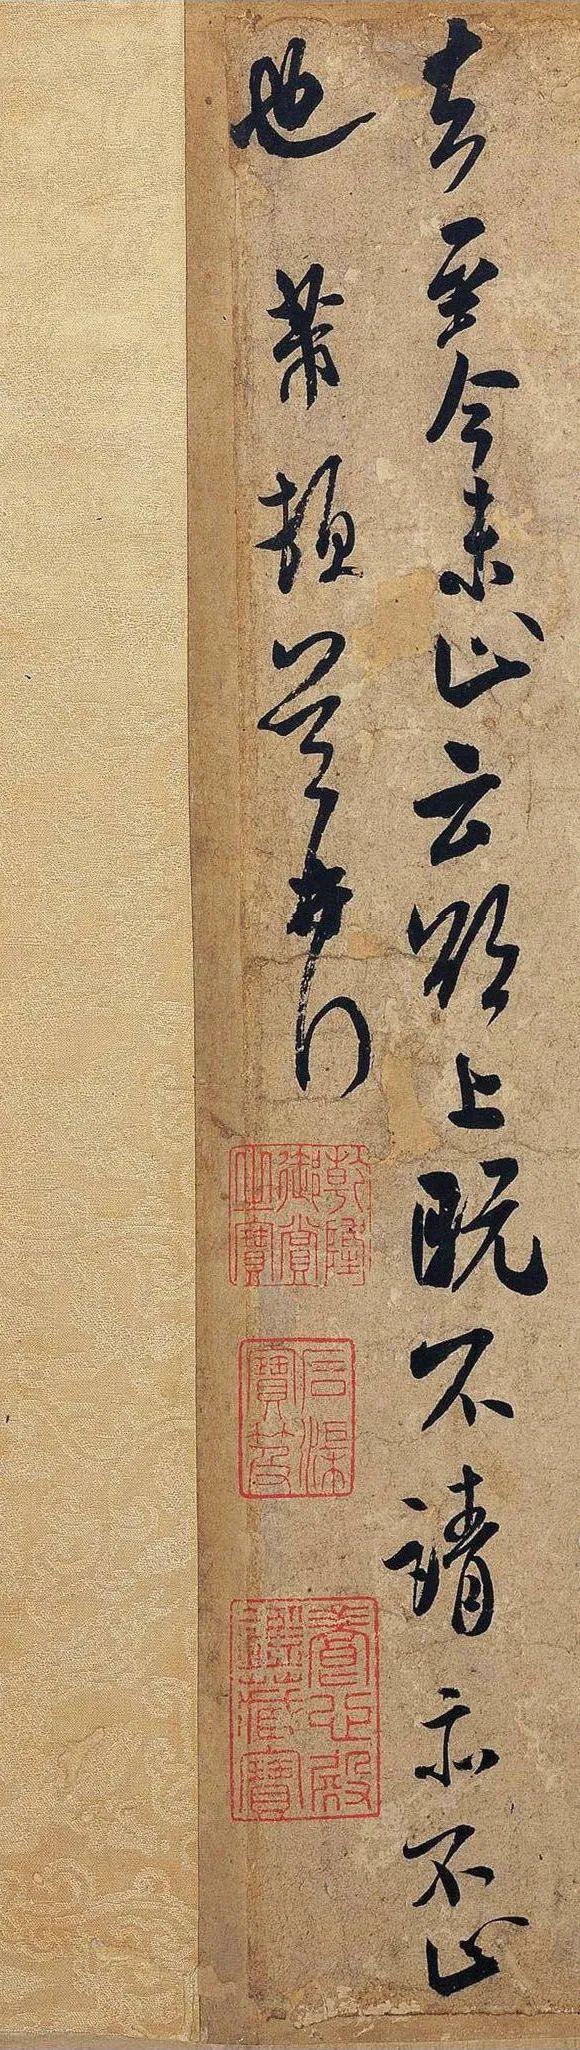 去至今未止云欲上既不請亦不止
也 芾頓首再拜
乾隆
御賞
之寶
石渠
寶笈
養心殿
鑑藏寶